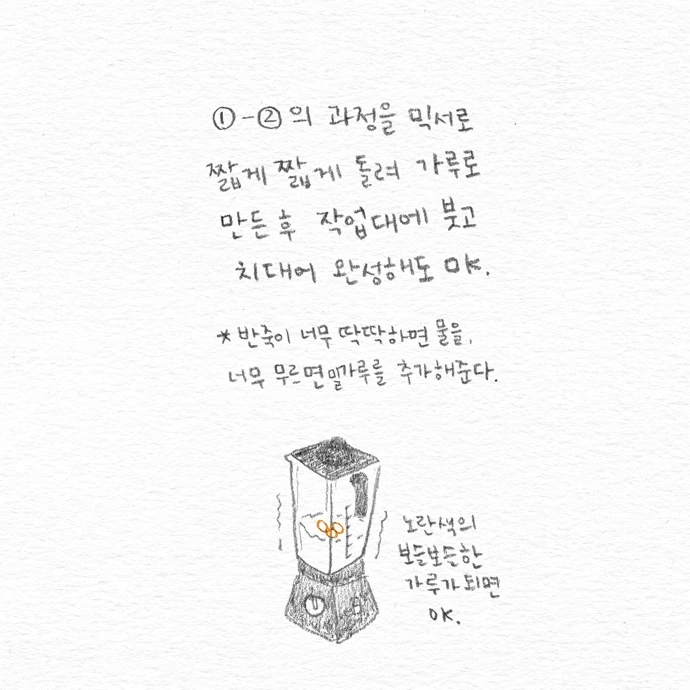 ①-②의 과정을 믹서로
짧게 짧게 돌려 가루로
만든 후 작업대에 붓고
치대어 완성해도 OK.
*반죽이 너무 딱딱하면 물을,
너무 무르면 밀가루를 추가해준다.
노란색의
보들보들한
가루가 되면
OK.